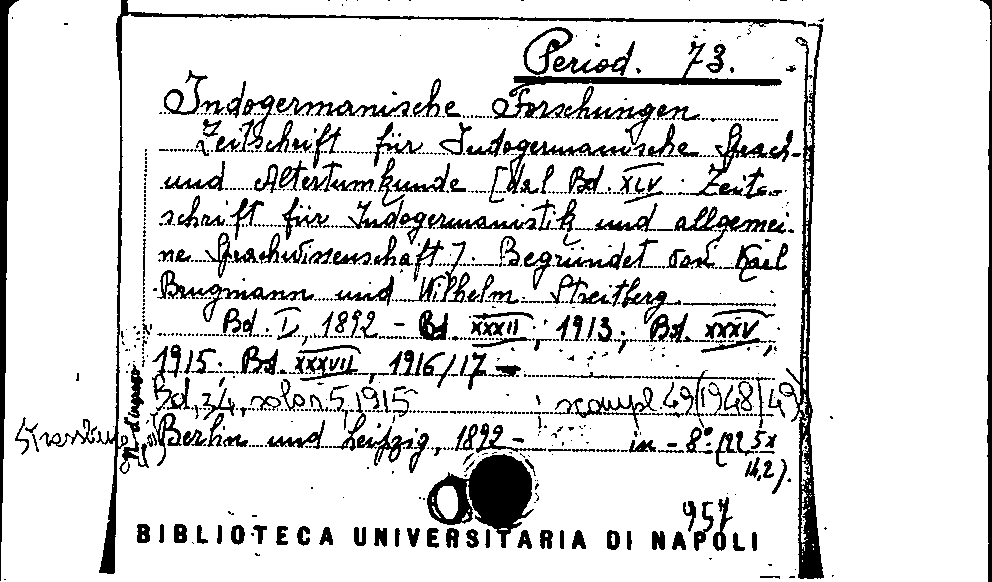 Period. 73.
Indogermanische Forschungen
Zeitschrift für Indogermanische Sprach-
und Altertumkunde [dal Bd. XLV: Zeit-
schrift für Indogermanistik und allgemei-
ne Sprachwissenschaft]. Begründet von Karl
Brugmann und Wilhelm Streitberg.
Bd. I, 1892 - Bd. XXXII, 1913; Bd. XXXV,
1915. Bd. XXXVII, 1916/17 -
Bd, 34, solo n 5, 1915 scompl. 49 (1948/49)
Strassburg
Berlin und Leipzig, 1892 - in - 8° (22,5 x
14,2).
957
BIBLIOTECA UNIVERSITARIA DI NAPOLI